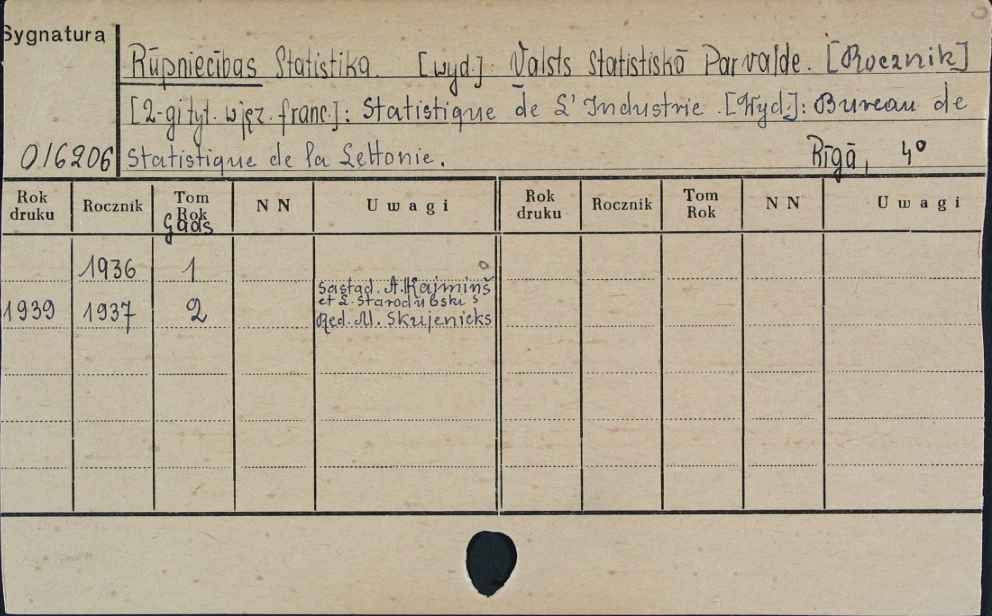 Sygnatura
Rūpniecības Statistika. [wyd.]: Valsts Statistiskā Parvalde. [Rocznik]
[2-gi tyt. w jęz. franc.]: Statistique de L'Industrie. [Wyd.]: Bureau de
016206 Statistique de la Lettonie. Rīgā, 4º
Rok druku Rocznik Tom Rok Gads NN Uwagi Rok druku Rocznik Tom Rok NN Uwagi
1936 1
Sastad. A. Kajmiņš
et L. Starodubskis
1939 1937 2 Red. M. Skujenieks